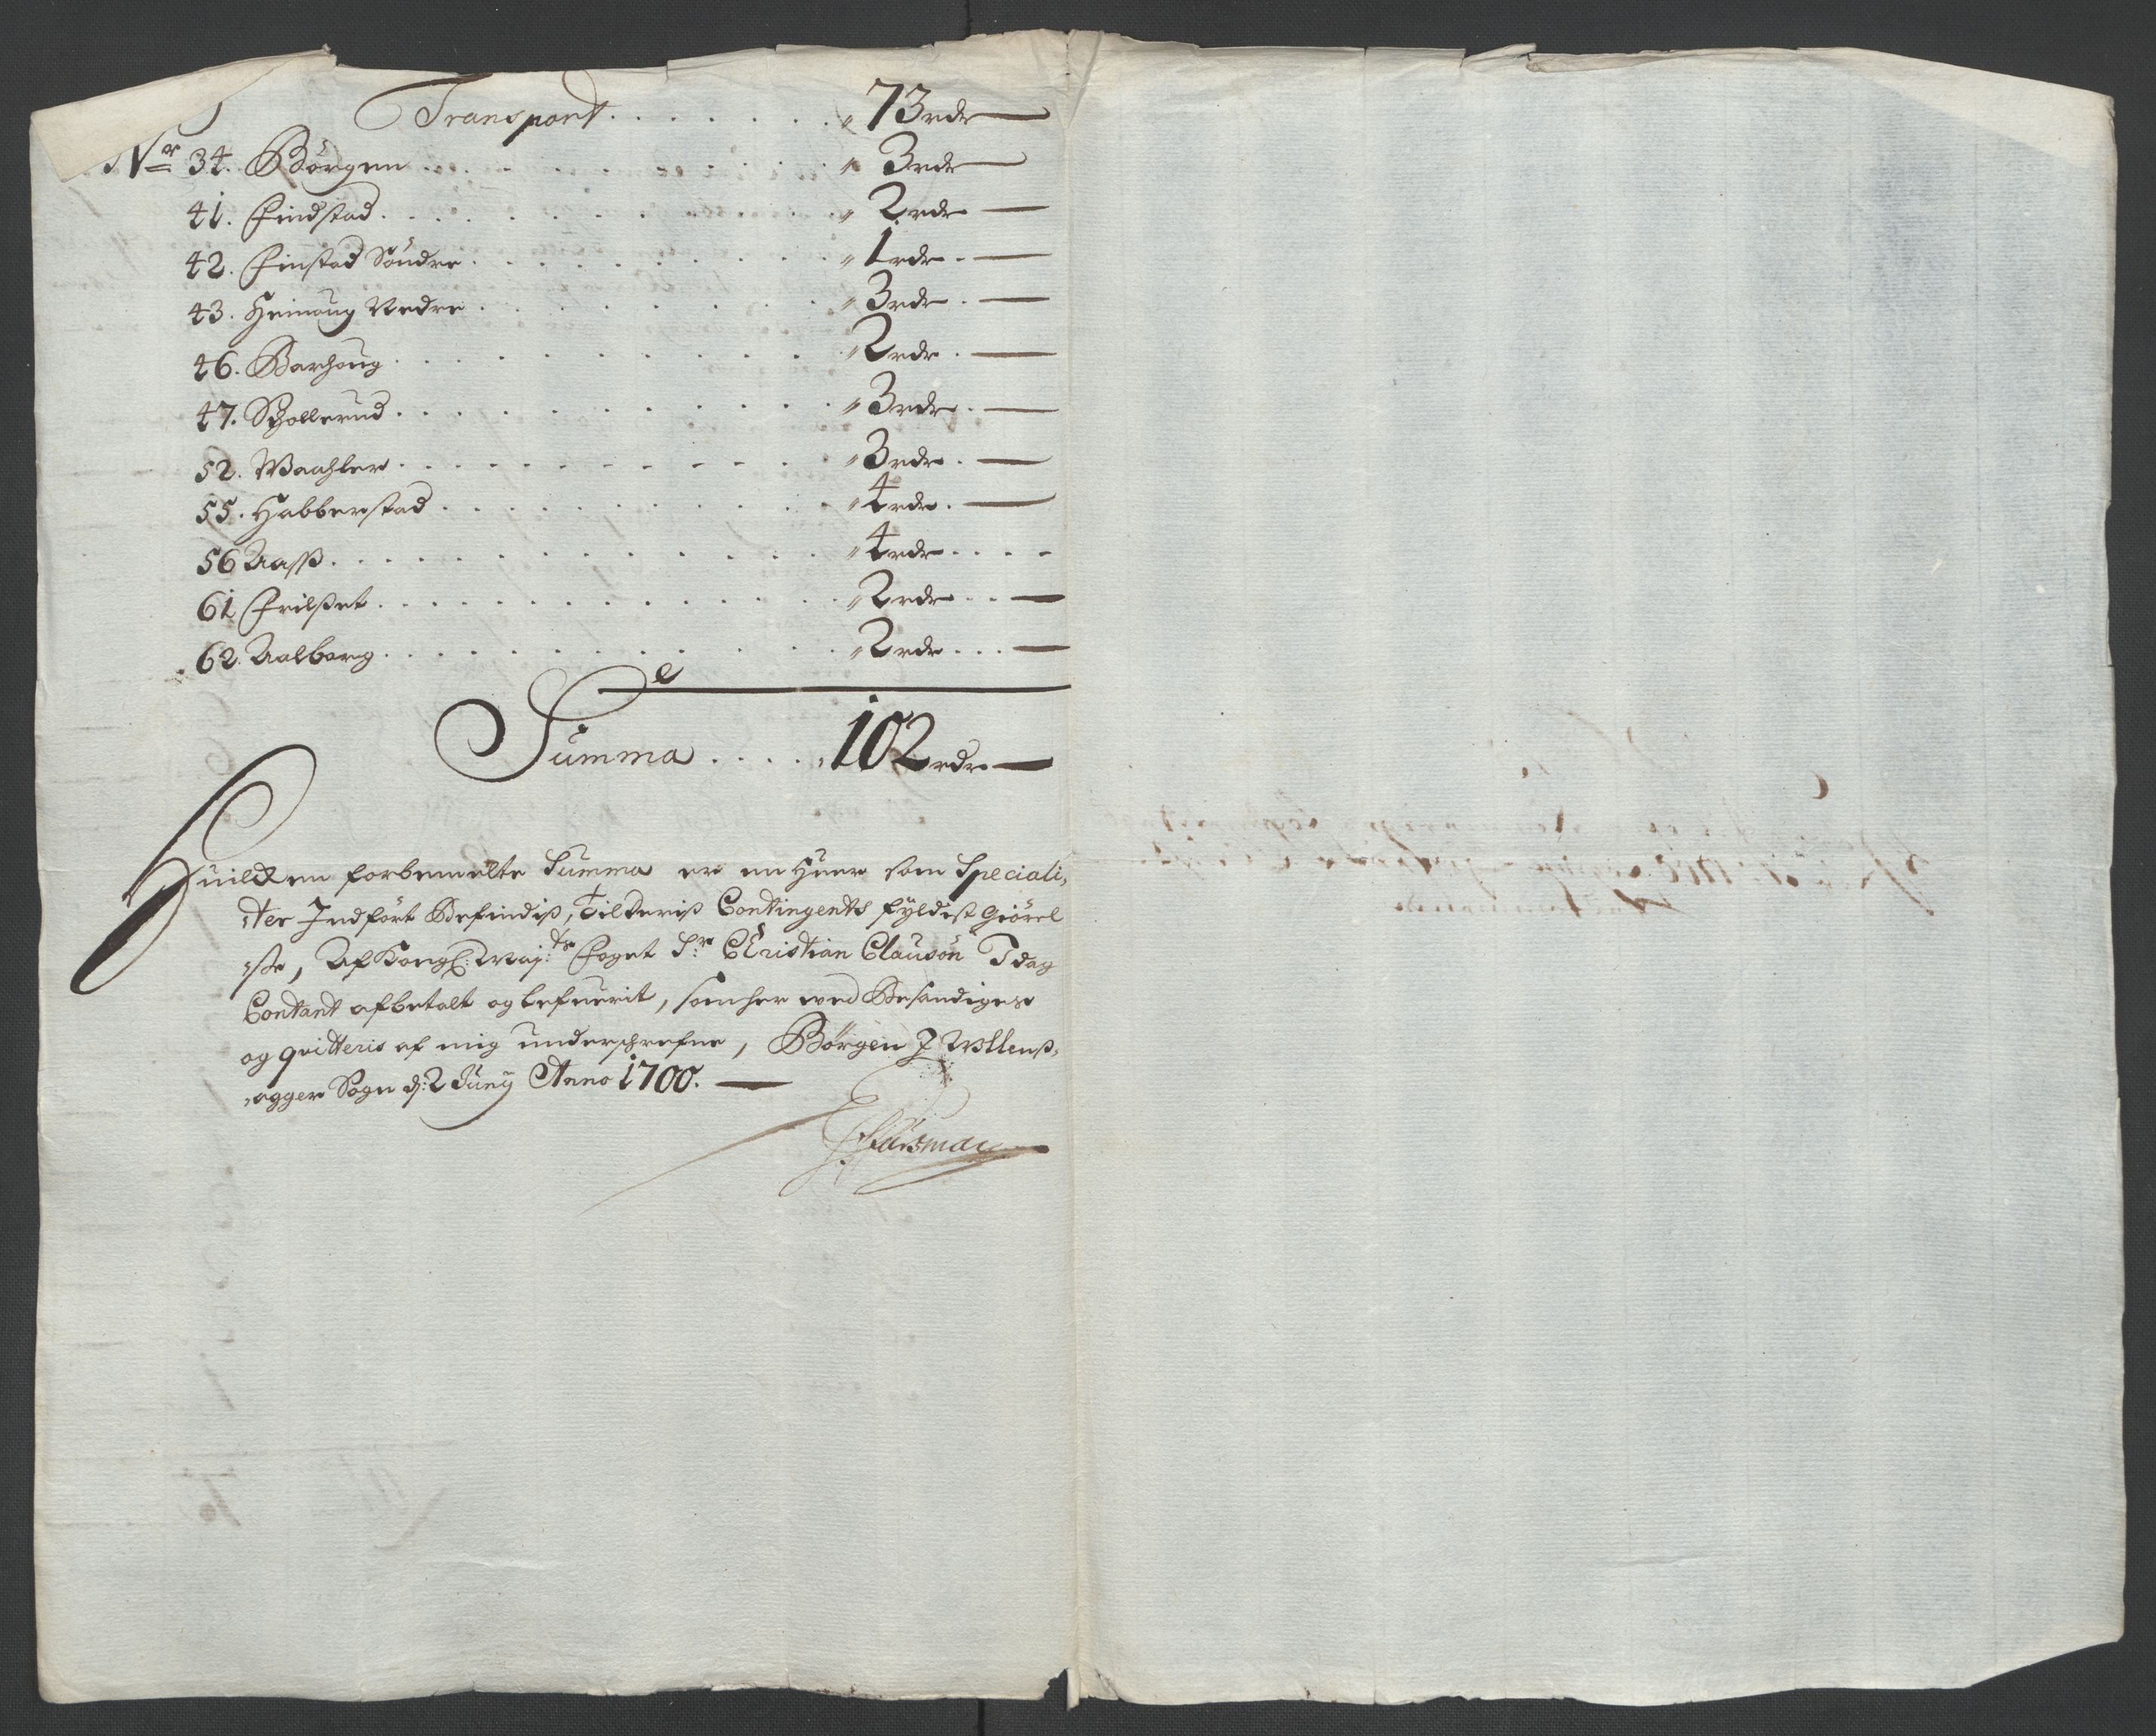 Transport . . . . . . . . 73 rdr
Nr 34. Börgen . . . . . 3 rdr
41. Findstad . . . . . 2 rdr
42. Finstad Söndre . . . . . 1 rdr
43. Heinoug Nedre . . . . . 3 rdr
46. Barhoug . . . . . 2 rdr
47. Schollerud . . . . . 3 rdr
52. Waahler . . . . . 3 rdr
55. Habberstad . . . . . 4 rdr
56 Aass . . . . . 4 rdr
61 Frilset . . . . . 2 rdr
62. Aalborg . . . . . 2 rdr
Summa . . . . 102 rdr
Huilcken forbemelte Summa er en Huer som Speciali,
,ter Indfört Befindis, til deris Contingents fyldist giörel
,sse, Af Kongl: Maj:ts foget Sr: Christian Clausön Idag
Contant afbetalt og lefuerit, som her ved Bestandiges
og qvitteris af mig underschrefne, Börgen J Ullens,
,agger Sogn d: 2 Junij Anno 1700.